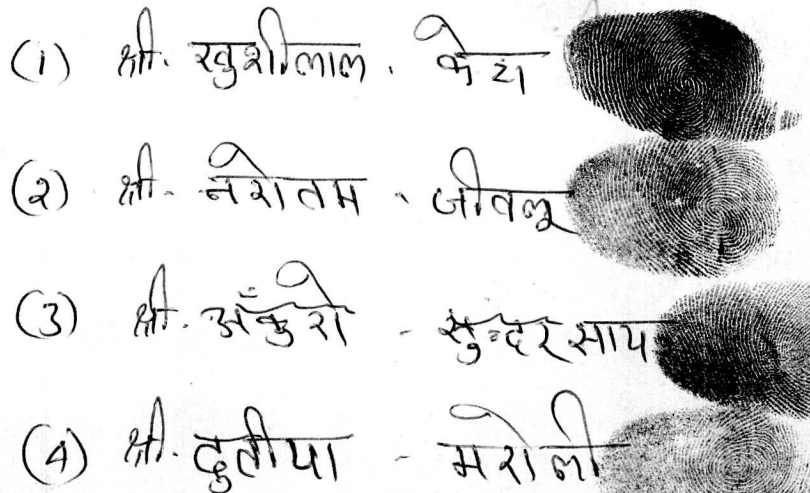 (1) श्री. खुशीलाल. केरा
(२) श्री. नरोतम - जीवलू
(3) श्री. अँकुरो - सुन्दरसाय
(4) श्री. दुतीया - मरोली